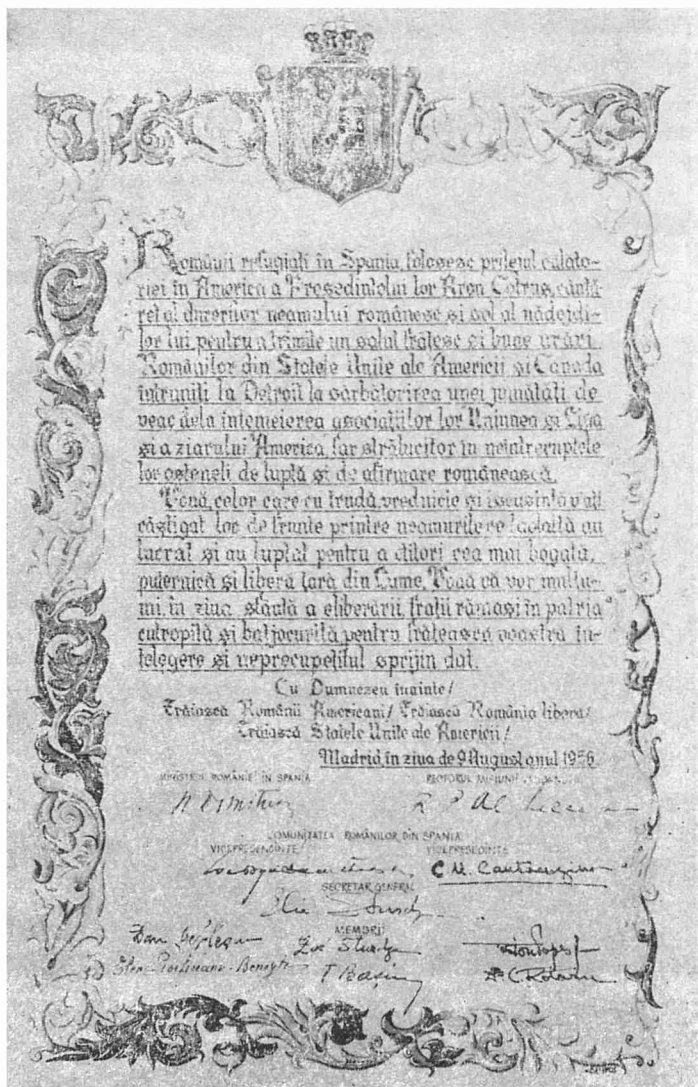 Românii refugiați în Spania, folosesc prilejul călăto-
riei în America a Președintelui lor Aron Cotruș, cântă-
reț al durerilor neamului românesc și sol al nădejdi-
lor lui, pentru a trimite un salut frățesc și bune urări
Românilor din Statele Unite ale Americii și Canada
întruniți la Detroit la sărbătorirea unei jumătăți de
veac dela întemeierea asociațiilor lor Uniunea și Liga
și a ziarului "America" far strălucitor în neîntreruptele
lor osteneli de luptă și de afirmare românească.
Vouă, celor care cu trudă, vrednicie și iscusință v'ați
câștigat loc de frunte printre neamurile ce laolaltă au
lucrat și au luptat pentru a clădi cea mai bogată,
puternică și liberă țară din Lume, Vouă vă vor mulțu-
mi, în ziua sfântă a eliberării, frații rămași în patria
cutropită și batjocurită pentru frățeasca voastră în-
țelegere și neprecupețitul sprijin dat.
Cu Dumnezeu înainte!
Trăiască Românii Americani! Trăiască România liberă!
Trăiască Statele Unite ale Americii!
Madrid, în ziua de 9 August anul 1956
MINISTRUL ROMÂNIEI IN SPANIA RECTORUL MISIUNII
N Dimitrescu
COMUNITATEA ROMÂNILOR DIN SPANIA
VICEPRESEDINTE VICEPRESEDINTE
C. M. Cantacuzino
SECRETAR GENERAL
Ilie Sturdza
MEMBRII
Dan Zoe Sturdza